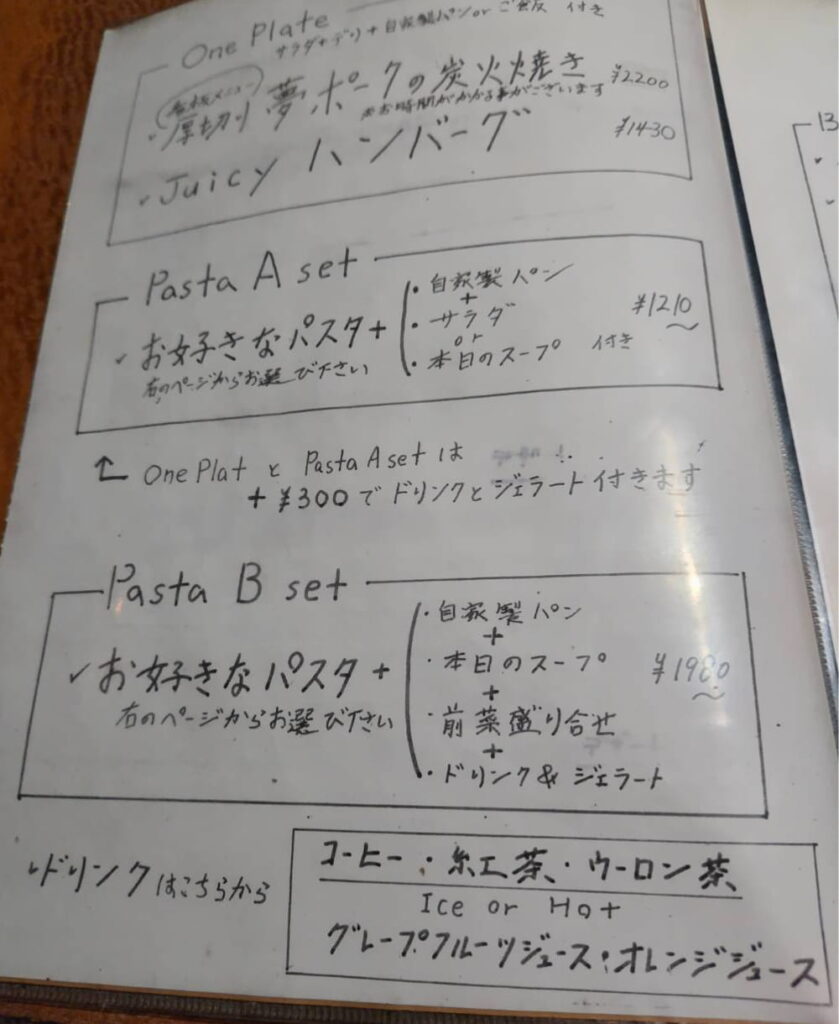 One Plate
サラダ+デリ+自家製パン or ご飯 付き
看板メニュー
厚切り 夢ポークの炭火焼き ¥2200
※お時間がかかる事がございます
Juicy ハンバーグ ¥1430
Pasta A set
お好きなパスタ +
右のページからお選び下さい
・自家製パン
+
・サラダ
or
・本日のスープ 付き
¥1210〜
One Plat と Pasta A set は
+¥300でドリンクとジェラート付きます
Pasta B set
お好きなパスタ +
右のページからお選び下さい
・自家製パン
+
・本日のスープ
+
・前菜盛り合せ
+
・ドリンク & ジェラート
¥1980〜
ドリンクはこちらから
コーヒー・紅茶・ウーロン茶
Ice or Hot
グレープフルーツジュース・オレンジジュース